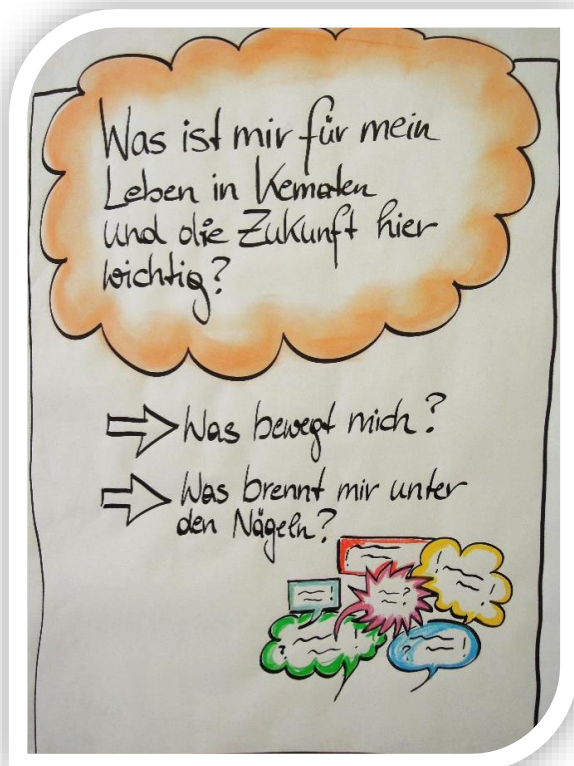 Was ist mir für mein
Leben in Kematen
und die Zukunft hier
wichtig?
Was bewegt mich?
Was brennt mir unter
den Nägeln?